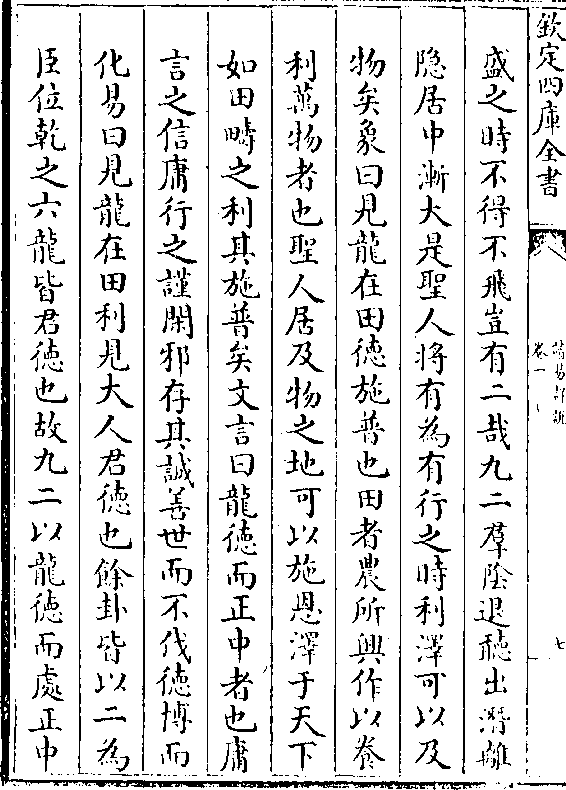 欽定四庫全書
讀易詳說
卷一
七
盛之時不得不飛豈有二哉九二羣陰退聽出潛離
隠居中漸大是聖人將有為有行之時利澤可以及
物矣象曰見龍在田徳施普也田者農所興作以養
利萬物者也聖人居及物之地可以施恩澤于天下
如田疇之利其施普矣文言曰龍徳而正中者也庸
言之信庸行之謹閑邪存其誠善世而不伐徳博而
化易曰見龍在田利見大人君徳也餘卦皆以二為
臣位乾之六龍皆君徳也故九二以龍徳而處正中